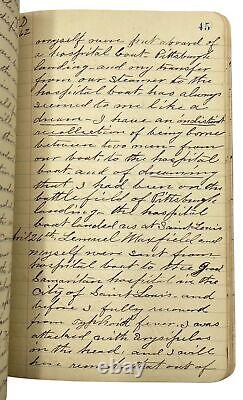 45
myself were put aboard of
a hospital boat - Pittsburgh
landing - and my transfer
from our steamer to the
hospital boat has always
seemed to me like a
dream - I have an indistinct
recollection of being borne
between two men from
our boat to the hospital
boat, and of dreaming
that I had been on the
battlefield of Pittsburgh
landing - the hospital
boat landed us at Saint Louis
26th Lemuel Maxfield and
myself were sent from
hospital boat to the Good
Samaritan hospital in the
city of Saint Louis. and
before I fully recovered
from Typhoid fever, I was
attacked with Erysipelas
in the head, and I will
here remark that out of
ebay